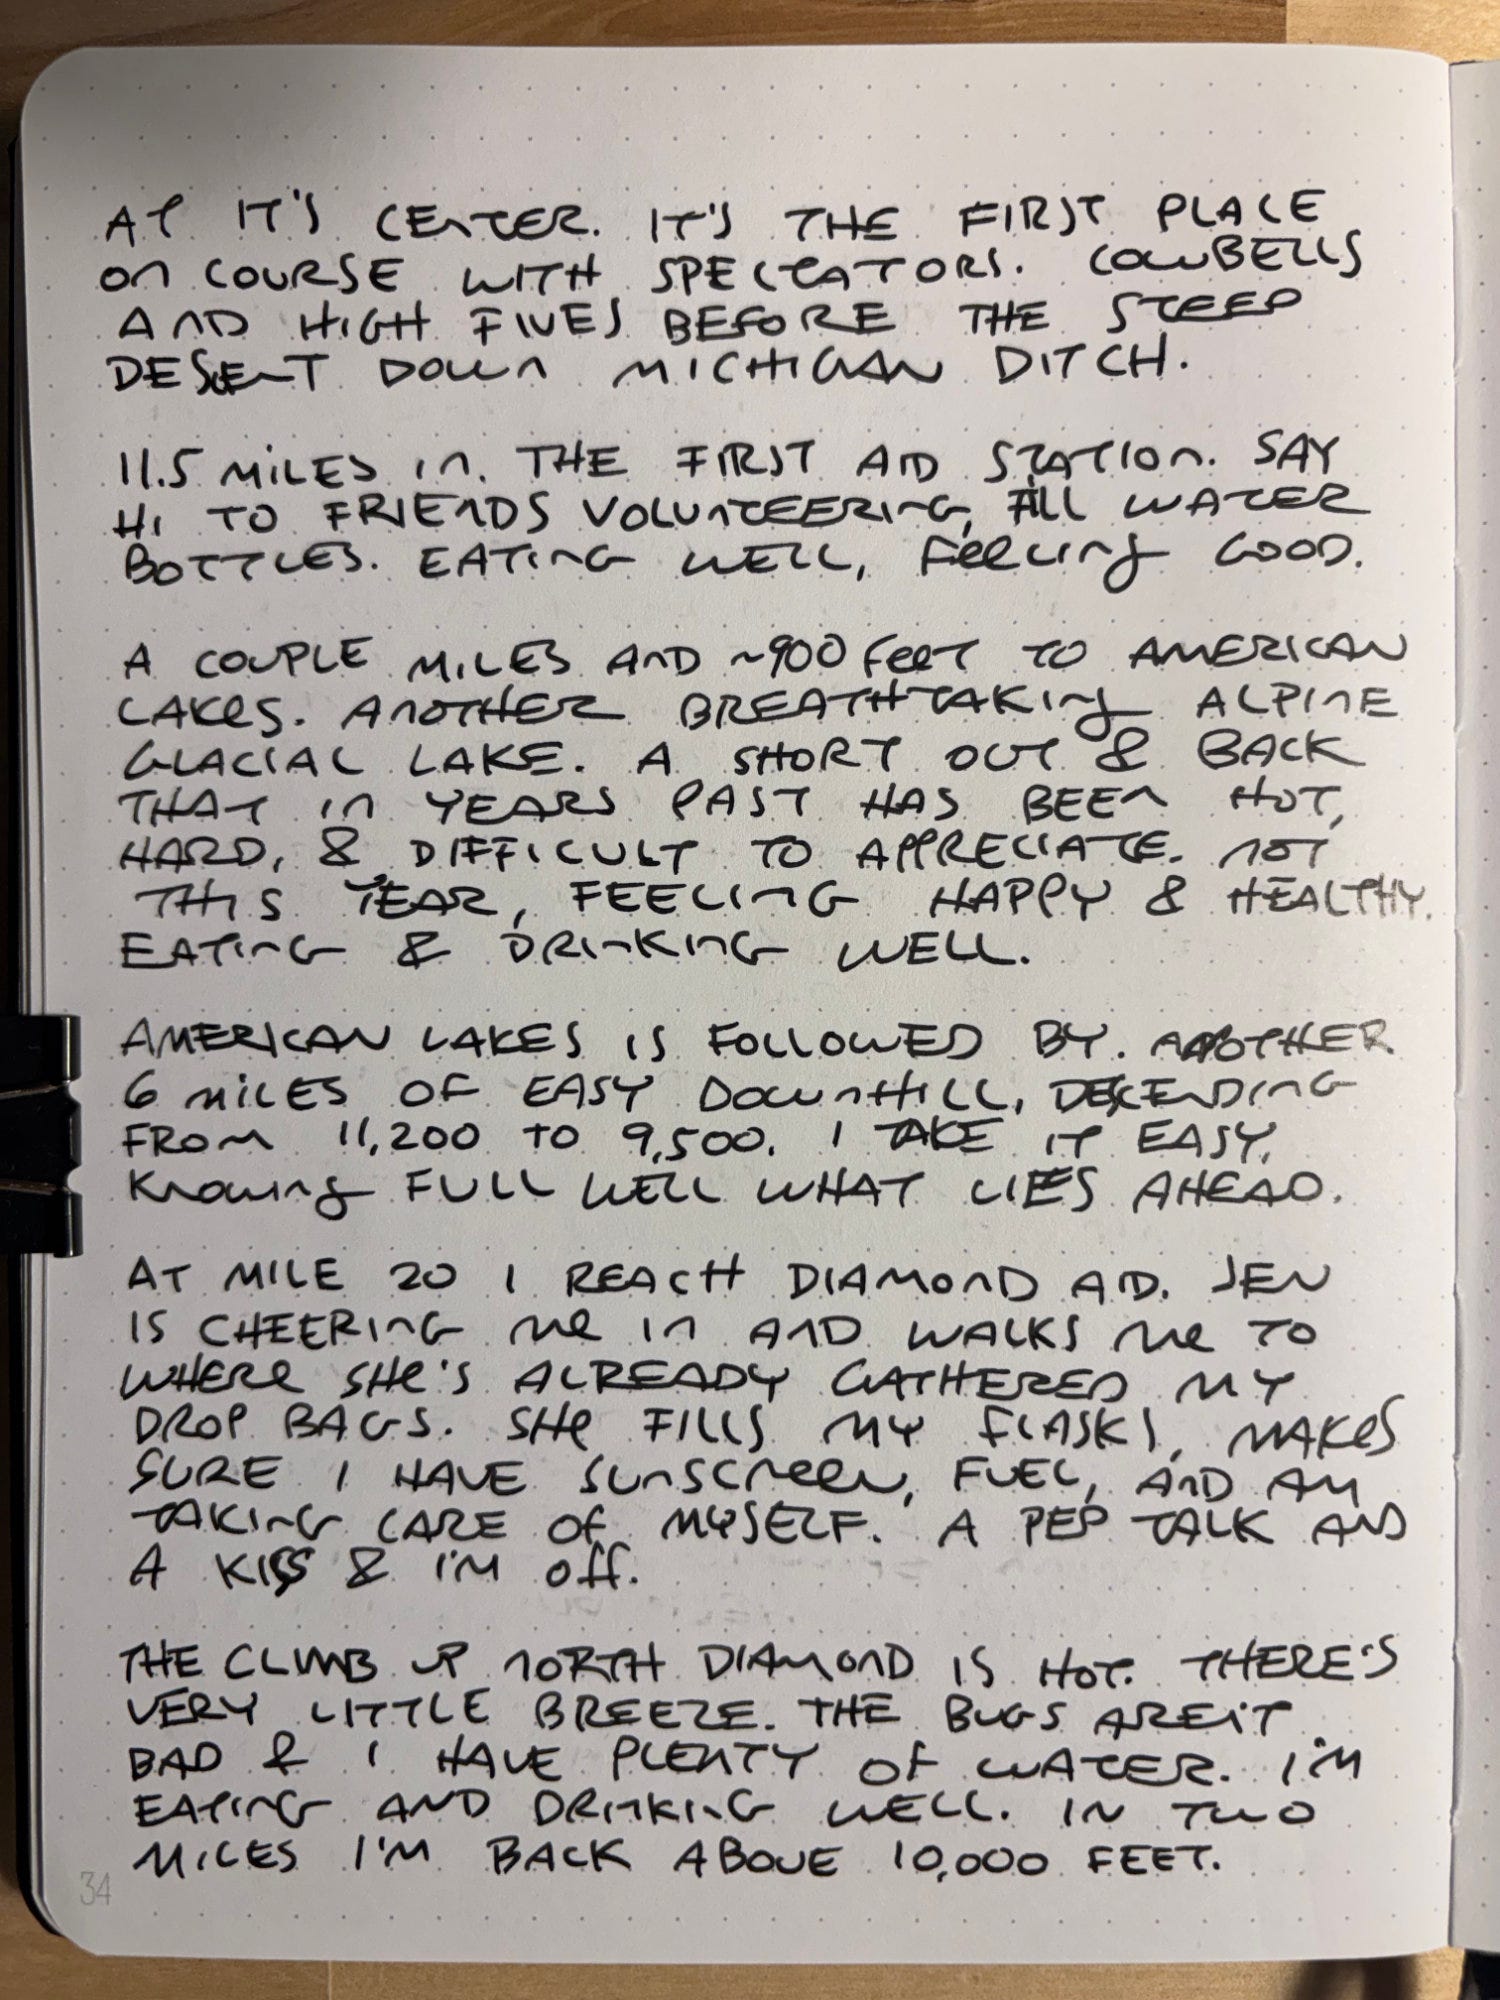 AT IT'S CENTER. IT'S THE FIRST PLACE
ON COURSE WITH SPECTATORS. COWBELLS
AND HIGH FIVES BEFORE THE STEEP
DESCENT DOWN MICHIGAN DITCH.
11.5 MILES IN. THE FIRST AID STATION. SAY
HI TO FRIENDS VOLUNTEERING, FILL WATER
BOTTLES. EATING WELL, FEELING GOOD.
A COUPLE MILES AND ~900 FEET TO AMERICAN
LAKES. ANOTHER BREATHTAKING ALPINE
GLACIAL LAKE. A SHORT OUT & BACK
THAT IN YEARS PAST HAS BEEN HOT,
HARD, & DIFFICULT TO APPRECIATE. NOT
THIS YEAR, FEELING HAPPY & HEALTHY.
EATING & DRINKING WELL.
AMERICAN LAKES IS FOLLOWED BY ANOTHER
6 MILES OF EASY DOWNHILL, DESCENDING
FROM 11,200 TO 9,500. I TAKE IT EASY,
KNOWING FULL WELL WHAT LIES AHEAD.
AT MILE 20 I REACH DIAMOND AID. JEN
IS CHEERING ME IN AND WALKS ME TO
WHERE SHE'S ALREADY GATHERED MY
DROP BAGS. SHE FILLS MY FLASKS, MAKES
SURE I HAVE SUNSCREEN, FUEL, AND AM
TAKING CARE OF MYSELF. A PEP TALK AND
A KISS & I'M OFF.
THE CLIMB UP NORTH DIAMOND IS HOT. THERE'S
VERY LITTLE BREEZE. THE BUGS AREN'T
BAD & I HAVE PLENTY OF WATER. I'M
EATING AND DRINKING WELL. IN TWO
MILES I'M BACK ABOVE 10,000 FEET.
34